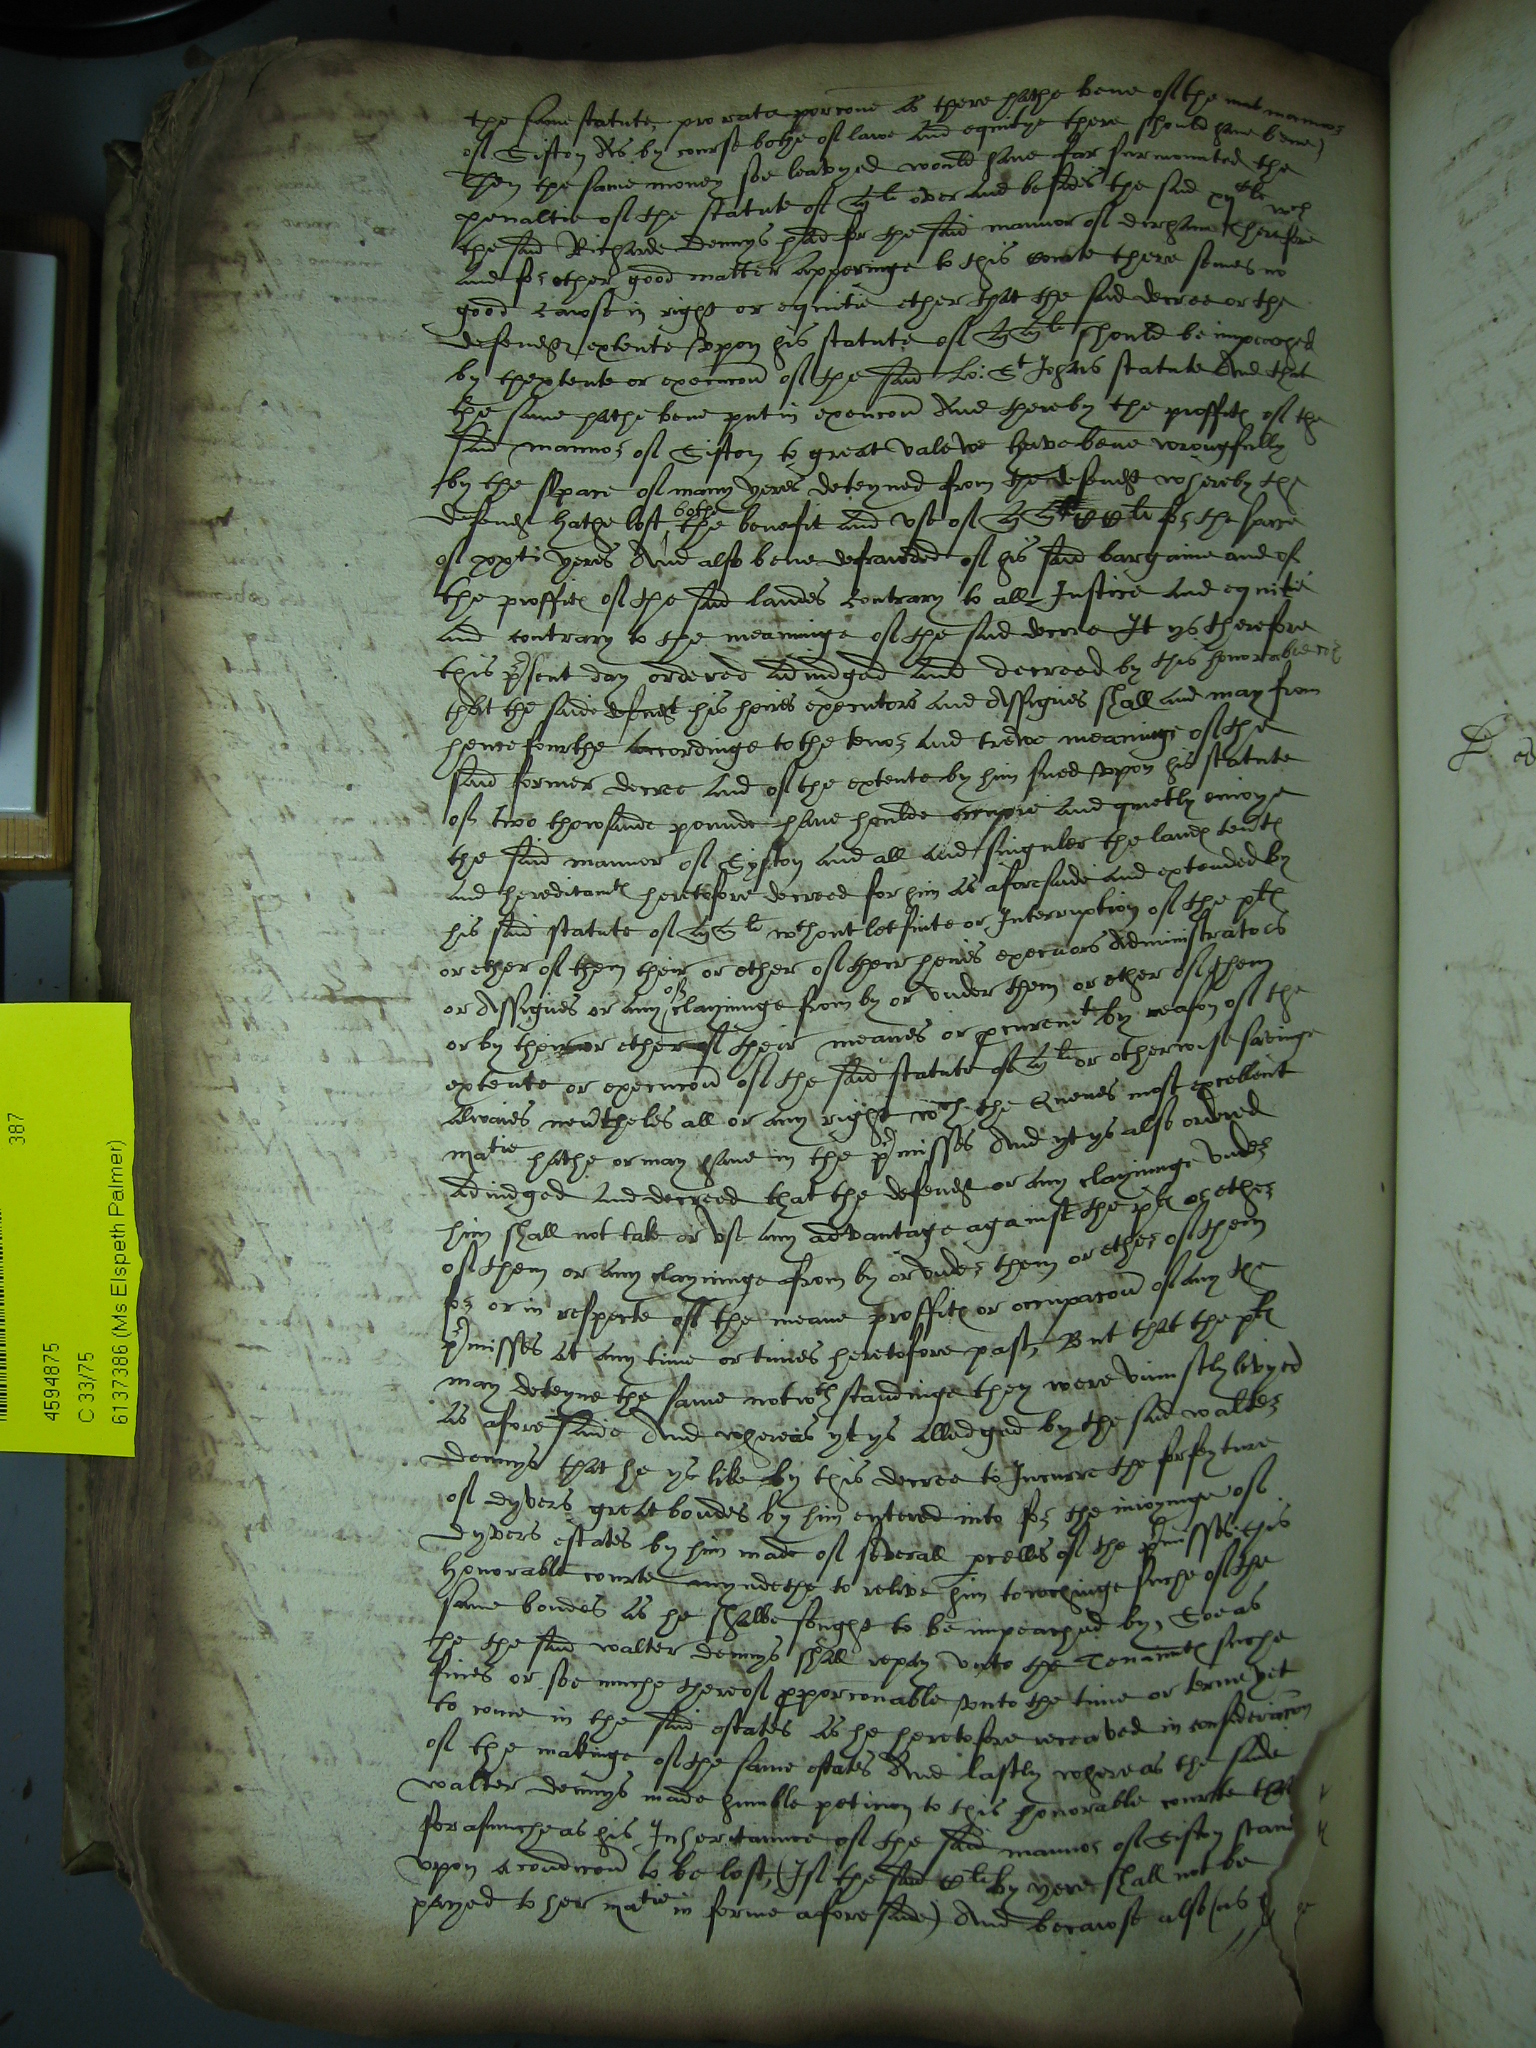 the same statute, pro rata porcone as there hathe bene of the
of Siston As by course bothe of lawe and equitye there should have bene)
Then the same money soe leavyed would have far surmounted the
penaltie of the statute of over and besides the said wch
the said Richarde Dennys had for the said mannor of dirham Therefore
and for other good matter Apperinge to this courte there semes no
good cawse in right or equitie ether that the said decree or the
defend extente uppon his statute of should be impeached
by thextente or execucon of the said Lo: St Johns statute And that
the same hathe bene put in execucon And thereby the proffitℯ of the
said mannor of Siston to great valewe have bene wrongfully
by the space of many yeres deteyned from the defendt whereby the
defendt hathe lost bothe the benefit and use of for the space
of yeres And also bene defrauded of his said bargaine and of
the proffitℯ of the said landes contrary to all Justice and equitie
and contrary to the meaninge of the said decree It ys therefore
this psent day ordered Adiudged and decreed by this honorable
that the saide defendt his heires executors and Assignes shall and may from
hencefourthe accordinge to the tenor and trewe meaninge of the
said former decree and of the extente by him sued uppon his statute
of two thowsande pounde have houlde occupie and quietly enioye
the said mannor of Syston and all and singuler the landℯ tentℯ
and hereditamtℯ heretofore decreed for him as aforesaide and extended by
his said statute of wthout let suite or Interruption of the pltℯ
or ether of them their or ether of their heires executors Administrators
or Assignes or any of clayminge from by or under them or ether of them
or by their or ether of their meanes or pcuremt by reason of the
extente or execucon of the said statute of or otherwise savinge
Alwaies nevtheles all or any right wch the Quenes most excellent
matie hathe or may have in the pmisses And yt ys also ordered
Adiudged and decreed that the defendt or any clayminge under
him shall not take or use any advantage against the pltℯ or ether
of them or any clayminge from by or under them or ether of them
for or in respecte of the meane proffitℯ or occupacon of any the
pmisses at any time or times heretofore past, But that the pltℯ
may deteyne the same notwthstandinge they were uniustly levyed
as aforesaide And whereas yt ys Alledged by the said walter
Dennys that he ys like by this decree to Incurre the forfeyture
of dyvers great bondes by him entered into for the inioyinge of
dyvers estates by him made of severall pcells of the pmisses this
honorable courte myndethe to relive him towchinge suche of the
same bondes as he shalbe sought to be impeached by, Soe as
he the said walter dennys shall repay unto the Tenantℯ suche
fines or soe muche thereof pporconable unto the time or terme yet
to come in the said estates as he heretofore receaved in consideracon
of the makinge of the same estates And lastly whereas the saide
walter dennys made humble peticion to this honorable courte that
forasmuche as his Inheritaunce of the said mannor of Siston stand
uppon a condicon to be lost, (If the said by yere shall not be
payed to her matie in forme aforesaide) And becawse also (as
387
4594875
C 33/75
6137386 (Ms Elspeth Palmer)